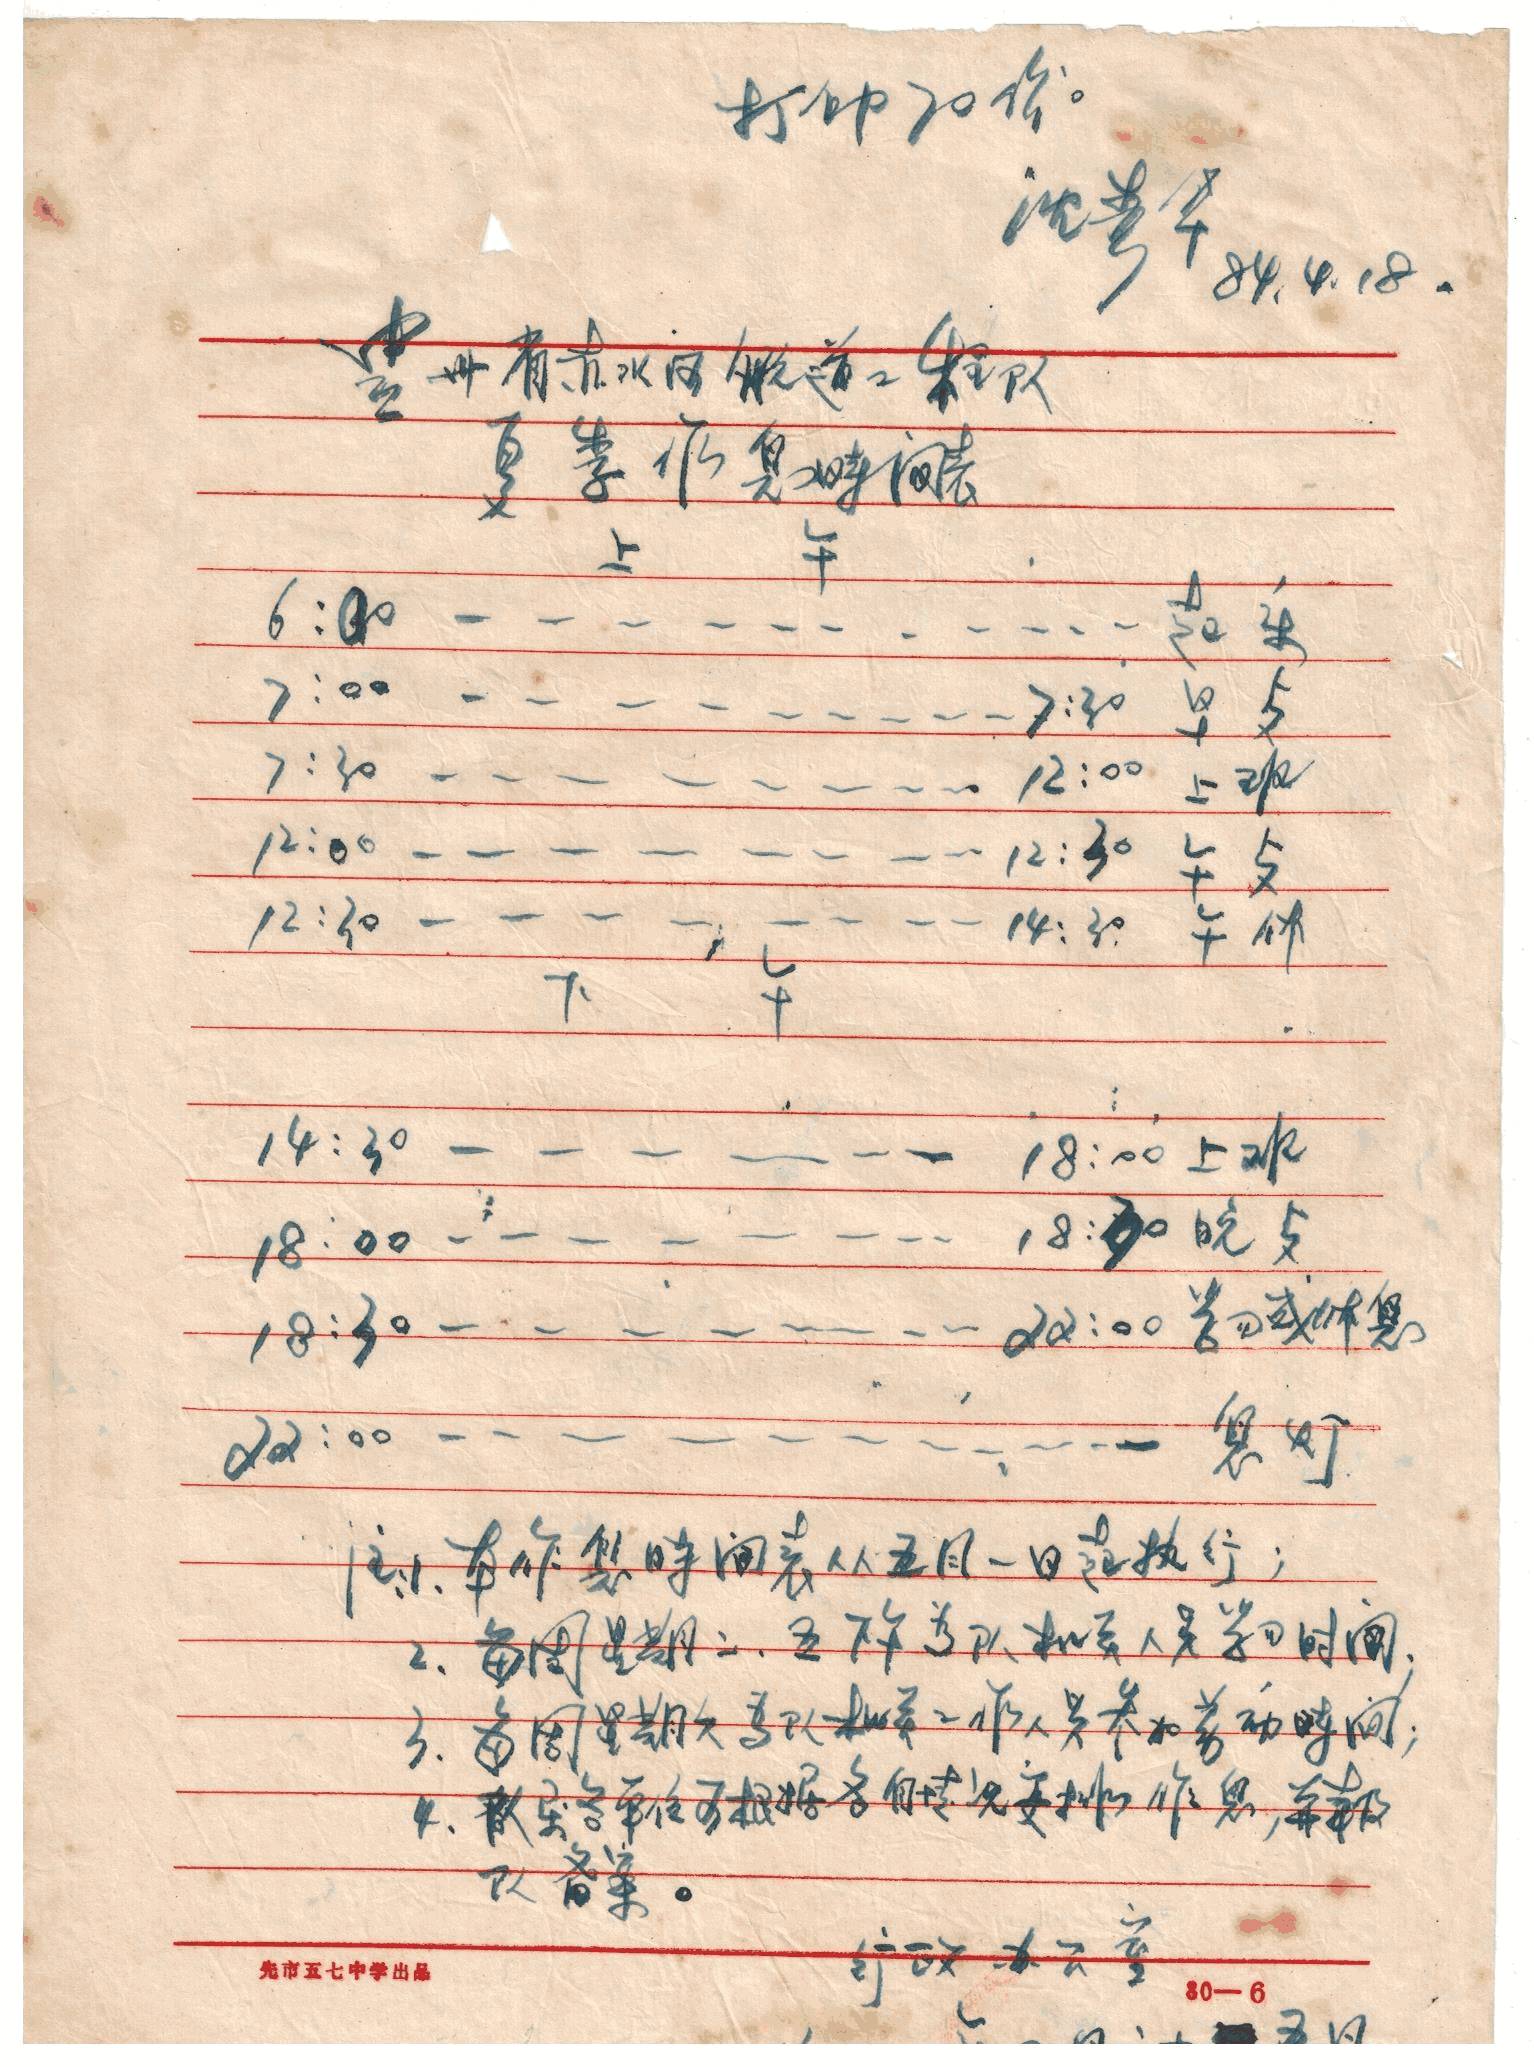 打印70份。
84.4.18.
贵州省赤水河航道工程队
夏季作息時间表
上 午
6:30 ———————————— 起床
7:00 ———————————— 7:30 早歺
7:30 ———————————— 12:00 上班
12:00 ———————————— 12:30 午歺
12:30 ———————————— 14:30 午休
下 午
14:30 ———————————— 18:00 上班
18:00 ———————————— 18:30 晚歺
18:30 ———————————— 22:00 学习或休息
22:00 ———————————— 息灯
注:1. 本作息時间表从五月一日起执行;
2. 每周星期二、五下午为队机关人员学习时间;
3. 每周星期六为队机关工作人员参加劳动時间;
4. 各单位可根据各自情况安排作息,并報
队备案。
行政办公室
先市五七中学出品 80—6
五月